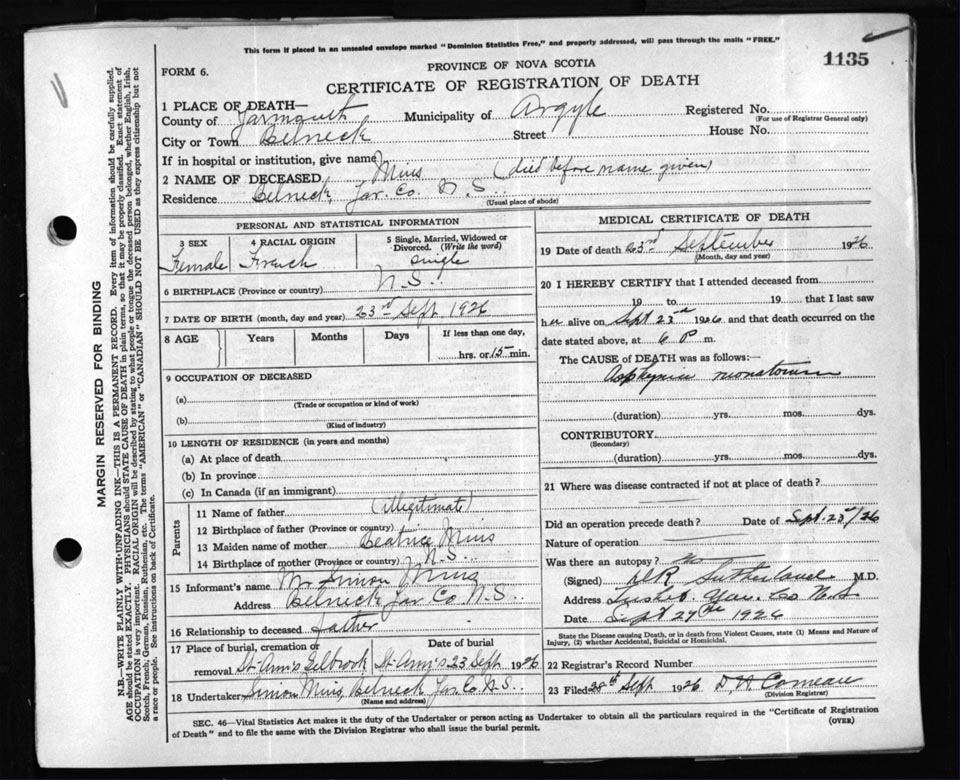 This form if placed in an unsealed envelope marked "Dominion Statistics Free," and properly addressed, will pass through the mails "FREE."
1135
PROVINCE OF NOVA SCOTIA
FORM 6.
CERTIFICATE OF REGISTRATION OF DEATH
1 PLACE OF DEATH—
County of Yarmouth Municipality of Argyle Registered No.
(For use of Registrar General only)
City or Town Belneck Street House No.
If in hospital or institution, give name
2 NAME OF DECEASED Muis (died before name given)
Residence Belneck Yar. Co. N.S.
(Usual place of abode)
PERSONAL AND STATISTICAL INFORMATION
3 SEX 4 RACIAL ORIGIN 5 Single, Married, Widowed or Divorced. (Write the word)
Female French single
6 BIRTHPLACE (Province or country) N.S.
7 DATE OF BIRTH (month, day and year) 23rd Sept 1926
8 AGE Years Months Days If less than one day,
hrs. or 15 min.
9 OCCUPATION OF DECEASED
(a)
(Trade or occupation or kind of work)
(b)
(Kind of industry)
10 LENGTH OF RESIDENCE (in years and months)
(a) At place of death
(b) In province
(c) In Canada (if an immigrant)
Parents
11 Name of father (illegitimate)
12 Birthplace of father (Province or country)
13 Maiden name of mother Beatrice Muis
14 Birthplace of mother (Province or country) N.S.
15 Informant's name Mr Simon Muis
Address Belneck Yar. Co. N.S.
16 Relationship to deceased father
17 Place of burial, cremation or removal Date of burial
St. Ann's St. Ann's 23 Sept 1926
18 Undertaker Simon Muis, Belneck Yar. Co. N.S.
(Name and address)
MEDICAL CERTIFICATE OF DEATH
19 Date of death 23rd September 1926
(Month, day and year)
20 I HEREBY CERTIFY that I attended deceased from
19 to 19 that I last saw
her alive on Sept 23rd 1926 and that death occurred on the
date stated above, at 6 P m.
The CAUSE of DEATH was as follows:—
Asphyxia neonatorum
(duration) yrs. mos. dys.
CONTRIBUTORY
(Secondary)
(duration) yrs. mos. dys.
21 Where was disease contracted if not at place of death?
Did an operation precede death? Date of Sept 23rd/26
Nature of operation
Was there an autopsy? no
(Signed) Sutherland M.D.
Address Tusket Yar. Co N.S
Date Sept 27th 1926
State the Disease causing Death, or in death from Violent Causes, state (1) Means and Nature of Injury, (2) whether Accidental, Suicidal or Homicidal.
22 Registrar's Record Number
23 Filed 28th Sept 1926 Comeau
(Division Registrar)
SEC. 46—Vital Statistics Act makes it the duty of the Undertaker or person acting as Undertaker to obtain all the particulars required in the "Certificate of Registration
of Death" and to file the same with the Division Registrar who shall issue the burial permit.
(OVER)
MARGIN RESERVED FOR BINDING
N.B.—WRITE PLAINLY WITH UNFADING INK—THIS IS A PERMANENT RECORD. Every item of information should be carefully supplied.
AGE should be stated EXACTLY. PHYSICIANS should STATE CAUSE OF DEATH in plain terms, so that it may be properly classified. Exact statement of
OCCUPATION is very important. RACIAL ORIGIN will be described by stating to what people or tongue the deceased person belonged, whether English, Irish,
Scotch, French; German, Russian, Ruthenian, etc. The terms "AMERICAN" or "CANADIAN" SHOULD NOT BE USED as they express citizenship but not
a race or people. See instructions on back of Certificate.